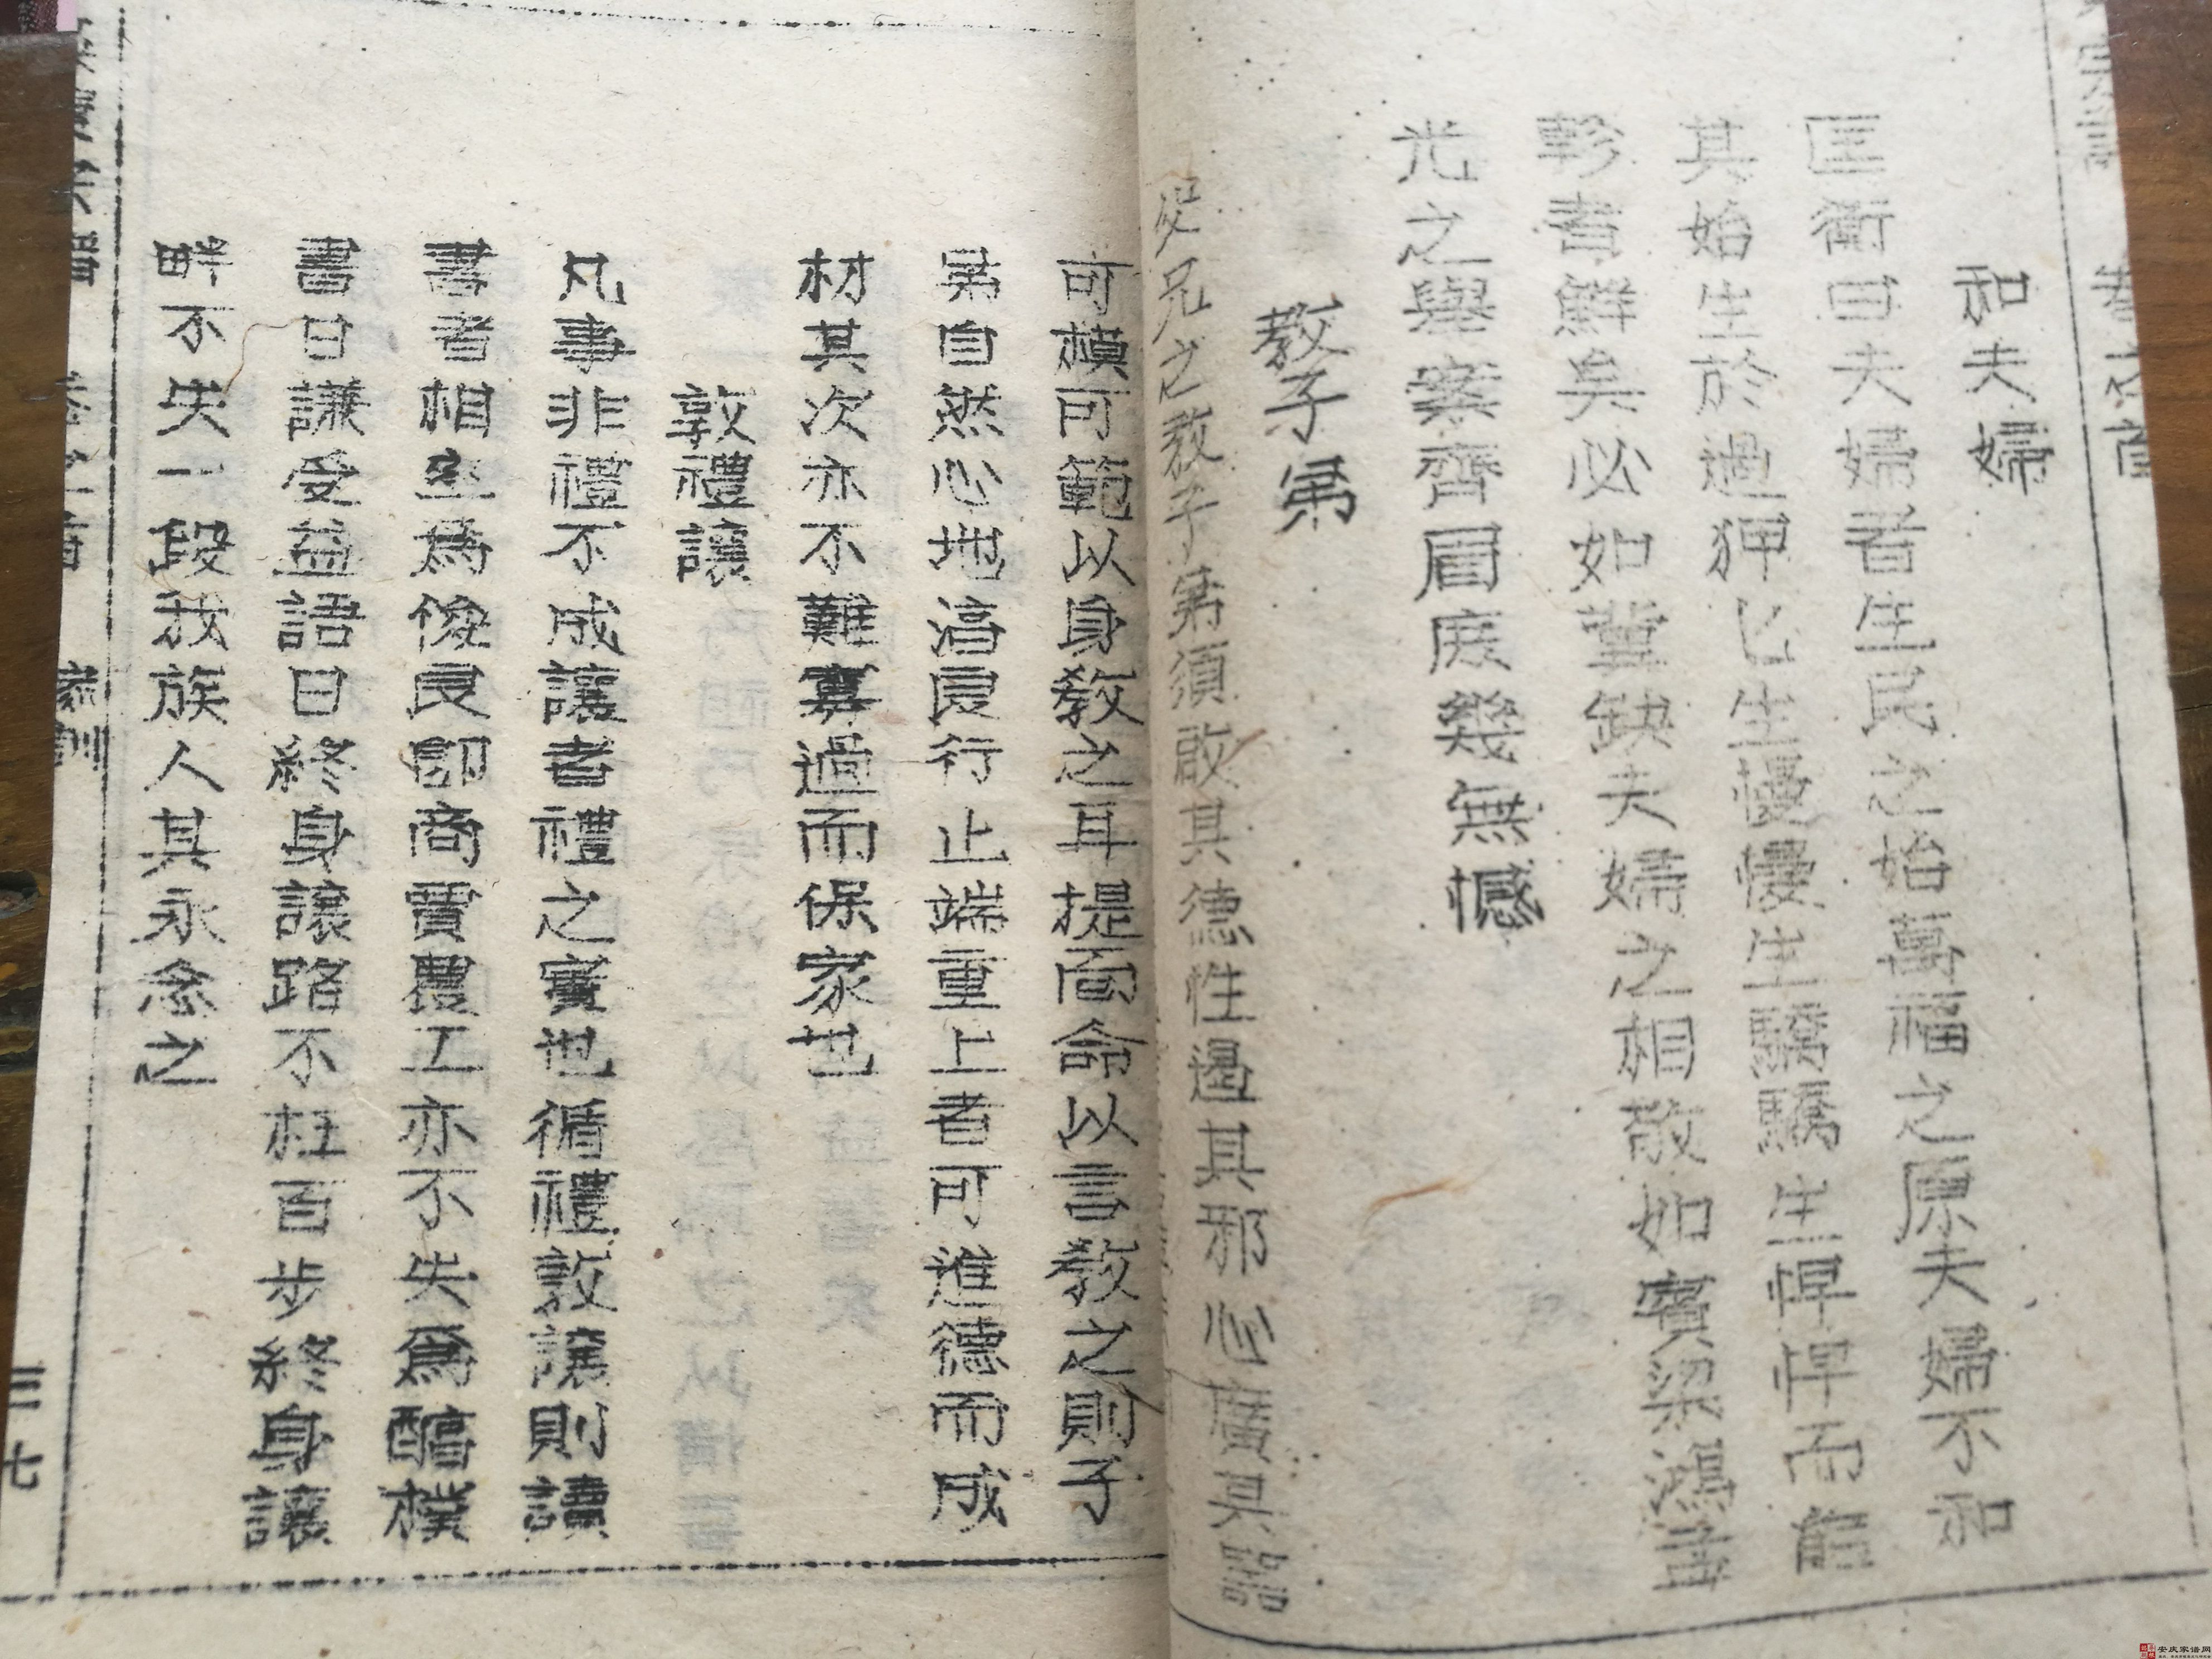 和夫婦
匡衡曰夫婦者生民之始萬福之原夫婦不和
其始生於過狎匕生慢慢生驕驕生悍悍而能
彰者鮮矣必如冀缺夫婦之相敬如賓梁鴻孟
光之舉案齊眉庶幾無憾
教子弟
父兄之教子弟須啟其德性遏其邪心廣其器
可模可範以身教之耳提面命以言教之則子
弟自然心地湻良行止端重上者可進德而成
材其次亦不難寡過而保家也
敦禮讓
凡事非禮不成讓者禮之實也循禮敦讓則讀
書者相率為俊良卽商賈農工亦不失爲醕樸
書曰謙受益語曰終身讓路不枉百步終身讓
畔不失一段我族人其永念之
家訓
三七
安庆家谱网